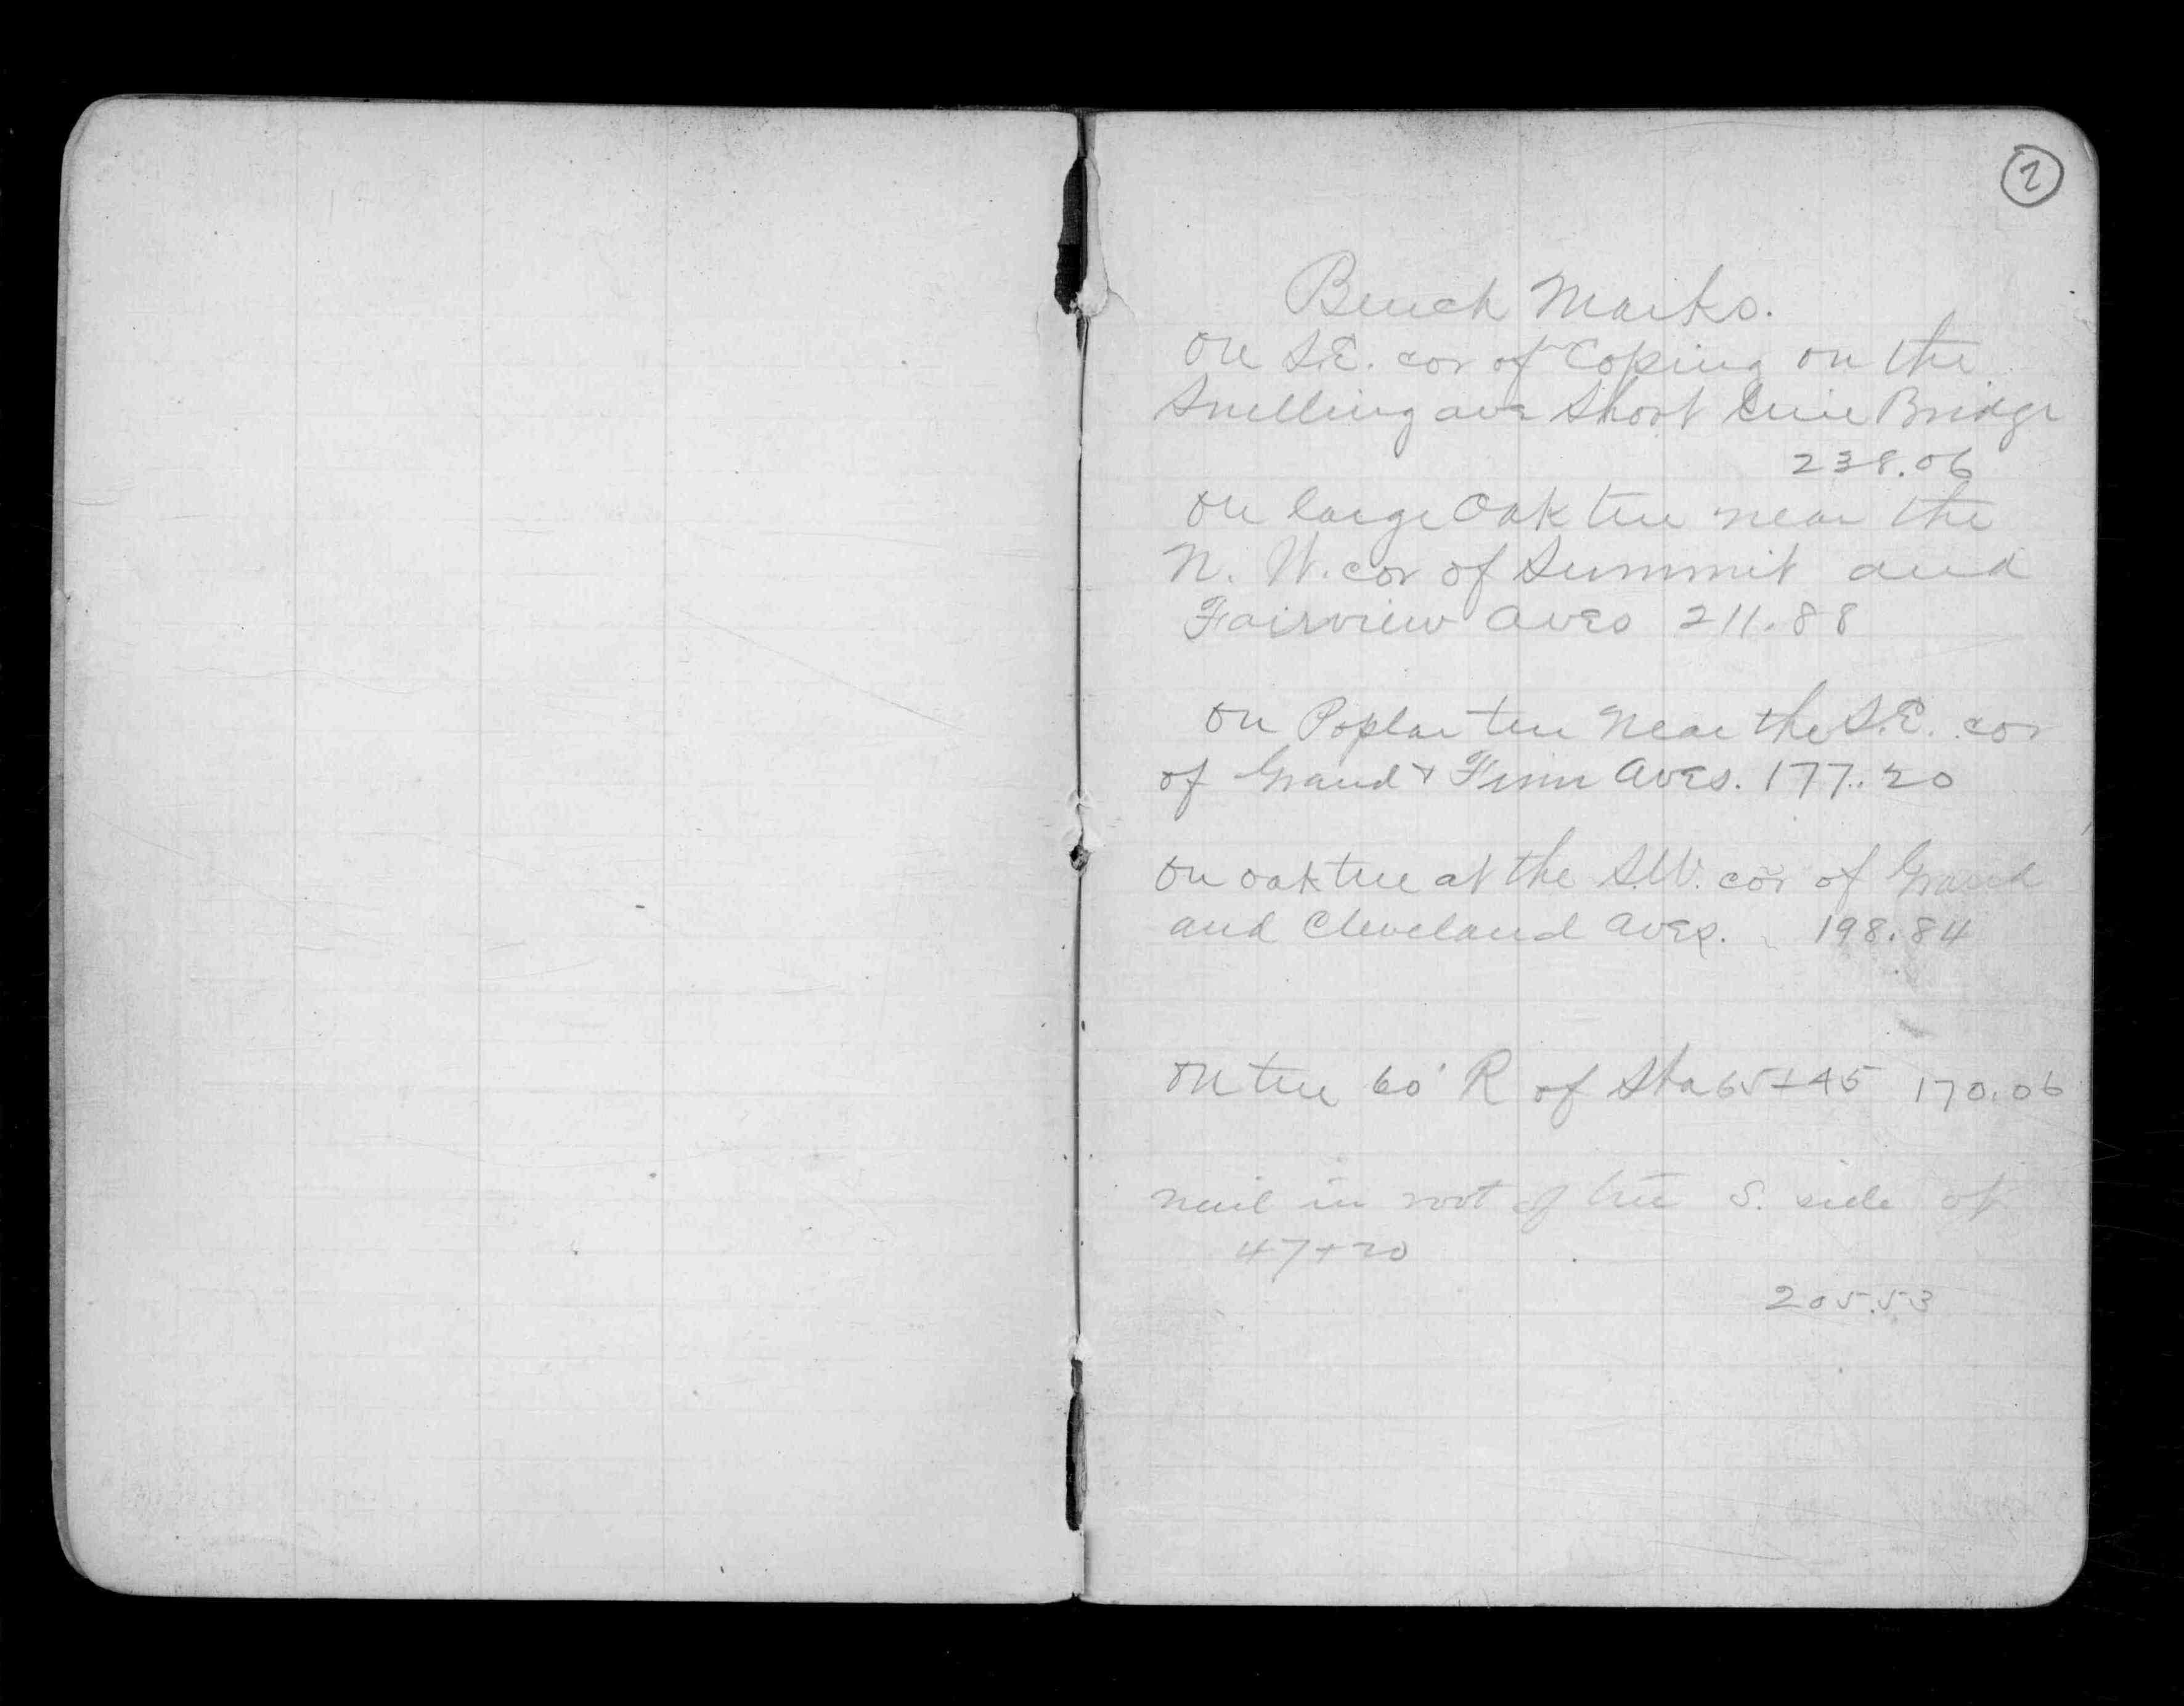 2
Bench Marks.
On S.E. cor of Coping on the
Snelling ave Short Line Bridge
238.06
On large Oak tree near the
N. W. cor of Summit and
Fairview Aves 211.88
On Poplar tree Near the S.E. cor
of Grand & Finn Aves. 177.20
On oak tree at the S.W. cor of Grand
and Cleveland Aves. 198.84
On tree 60' R of Sta 65+45 170.06
nail in root of tree S. side of
47+20
205.53